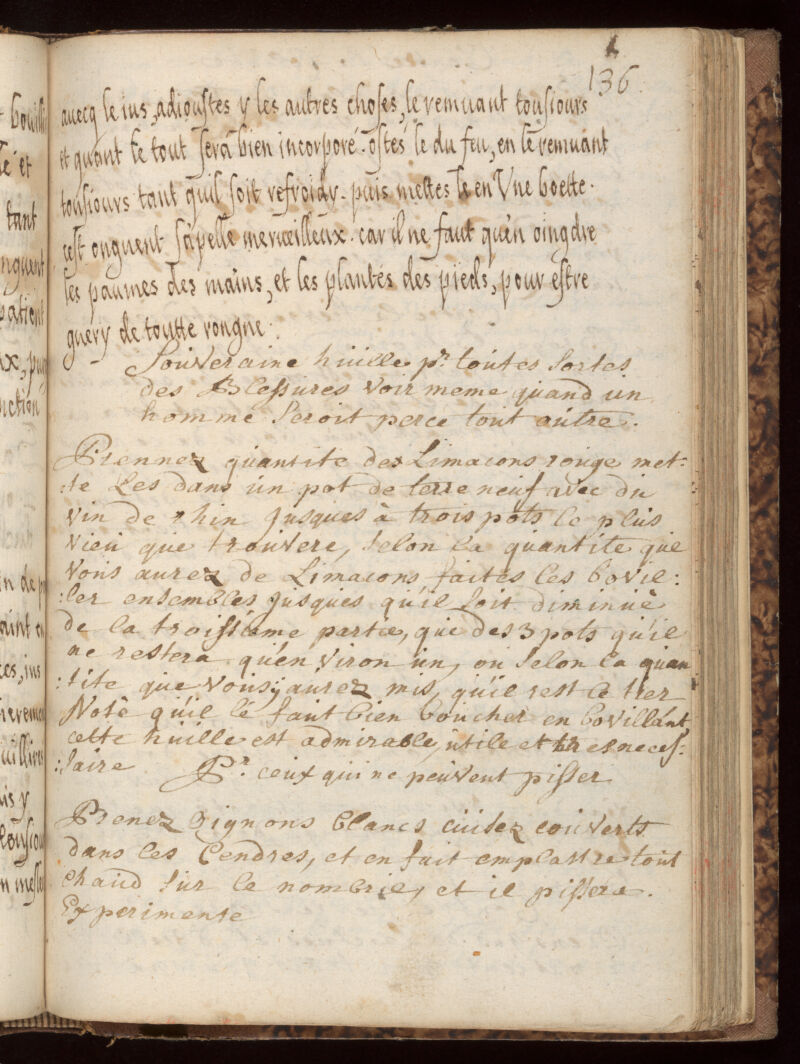 136
auecq le ius, adioustes y les autres choses, le remuant tousiours
et quant le tout sera bien incorporé. ostés le du feu, en le remuant
tousiours tant quil soit refroidy. puis mettes le en Vne boette.
cest onguent sapelle merueilleux. car il ne faut qu'en oingdre
les paumes des mains, et les plantés des pieds, pour estre
guery de toutte rongne.
Souveraine huille pr toutes sortes
des Blessures voir meme quand un
homme seroit perce tout autre.
Prennez quantite des Limacons rouge met:
:te Les dans un pot de terre neuf avec du
vin de rhin jusques à trois pots le plus
vieu que trouvere, selon la quantite que
Vous aurez de Limacons faites les bovil:
:ler ensembles jusques qu'il soit diminué
de la troissieme partie, que des 3 pots qu'il
ne restera qu'en viron un, ou selon la quan
:tite que vous y aurez mis, qu'il rest le tier
Note qu'il le faut bien boucher en bovillant
cette huille est admirable, utile et tresneces:
:saire Pr. ceux qui ne peuvent pisser
Prenez oignons blancs cuitez couverts
dans les Cendres, et en fait emplastre tout
chaud sur le nombrie, et il pissera.
Experimente
bouilli
et
tant
nguent
patient
nction
ces, ius
uilliers
ais y